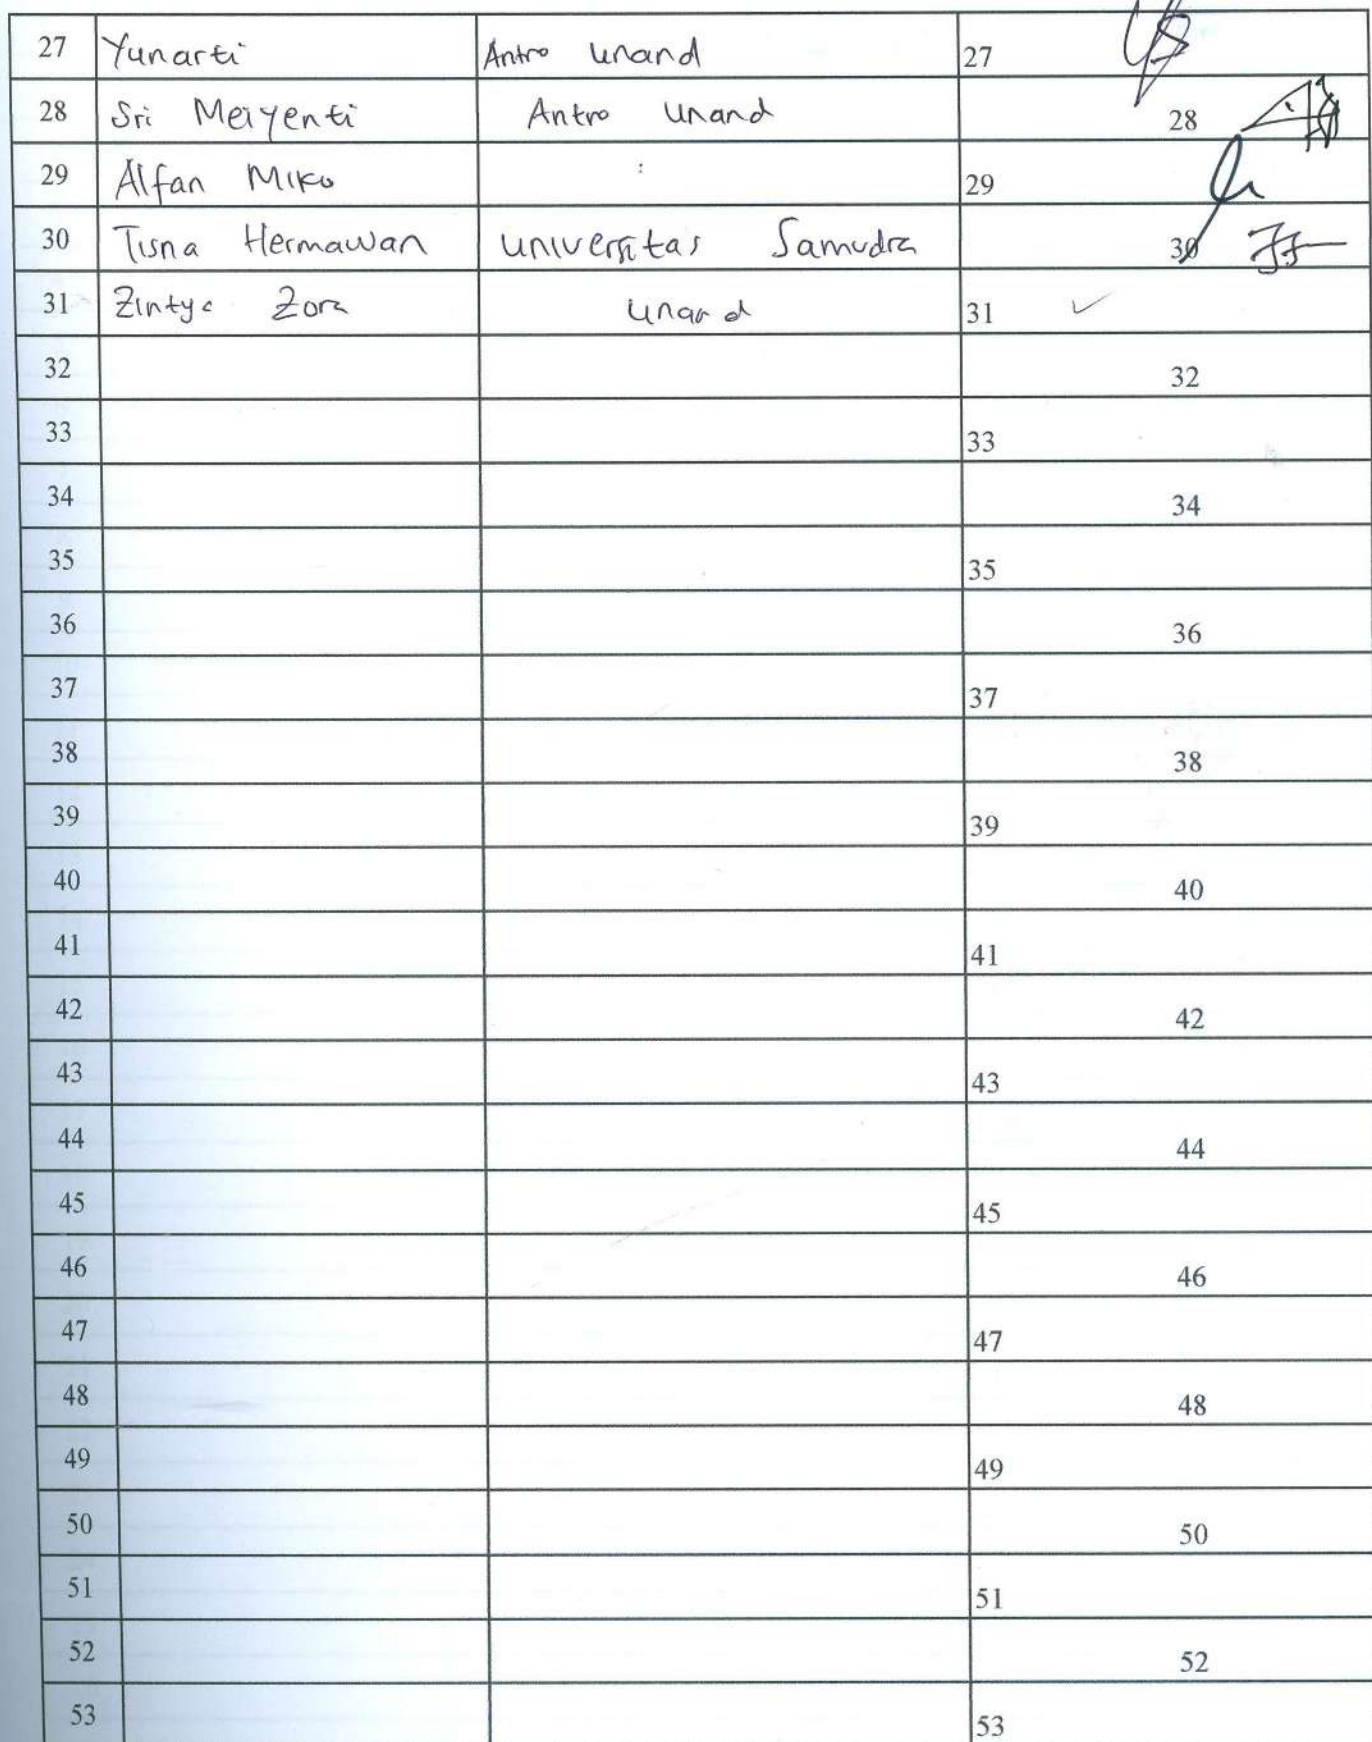 27 Yunarti Antro Unand 27
28 Sri Meiyenti Antro Unand 28
29 Alfan Miko : 29
30 Tisna Hermawan Universitas Samudra 30
31 Zintya Zora Unand 31 ✓
32 32
33 33
34 34
35 35
36 36
37 37
38 38
39 39
40 40
41 41
42 42
43 43
44 44
45 45
46 46
47 47
48 48
49 49
50 50
51 51
52 52
53 53